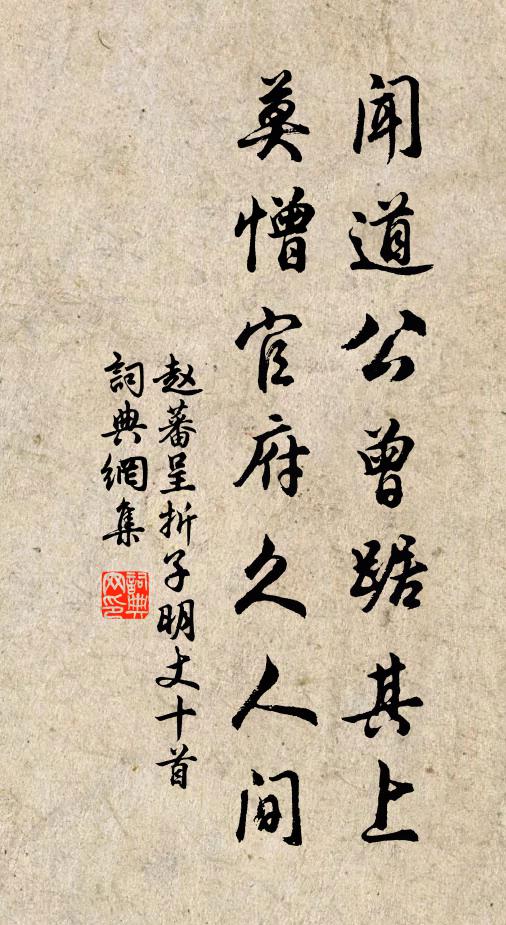 聞道公曾踞其上
莫憎官府久人間
赵蕃呈折子明丈十首
詞典網集
詞典网印